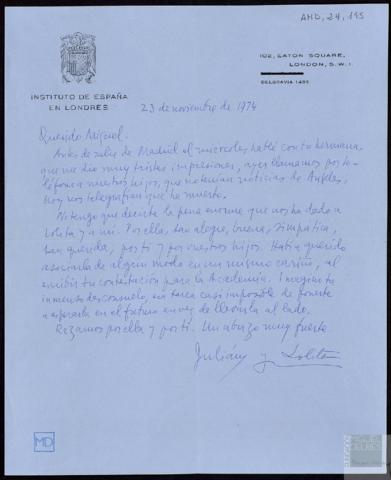 AMD, 24, 195
INSTITUTO DE ESPAÑA
EN LONDRES
102, EATON SQUARE,
LONDON, S.W.1.
BELGRAVIA 1485
23 de noviembre de 1974
Querido Miguel:
Antes de salir de Madrid el miércoles hablé con tu hermana,
que me dio muy tristes impresiones, ayer llamamos por te-
léfono a nuestros hijos, que no tenían noticias de Angeles,
hoy nos telegrafían que ha muerto.
No tengo que decirte la pena enorme que nos ha dado a
Lolita y a mí. Por ella, tan alegre, buena, simpática,
tan querida, por ti y por vuestros hijos. Había querido
asociarla de algún modo en un mismo cariño, al
escribir tu contestación para la Academia. Imagino tu
inmenso desconsuelo, esa tarea casi imposible de ponerte
a esperarla en el futuro en vez de llevarla al lado.
Rezamos por ella y por ti. Un abrazo muy fuerte
Julián y Lolita
MD